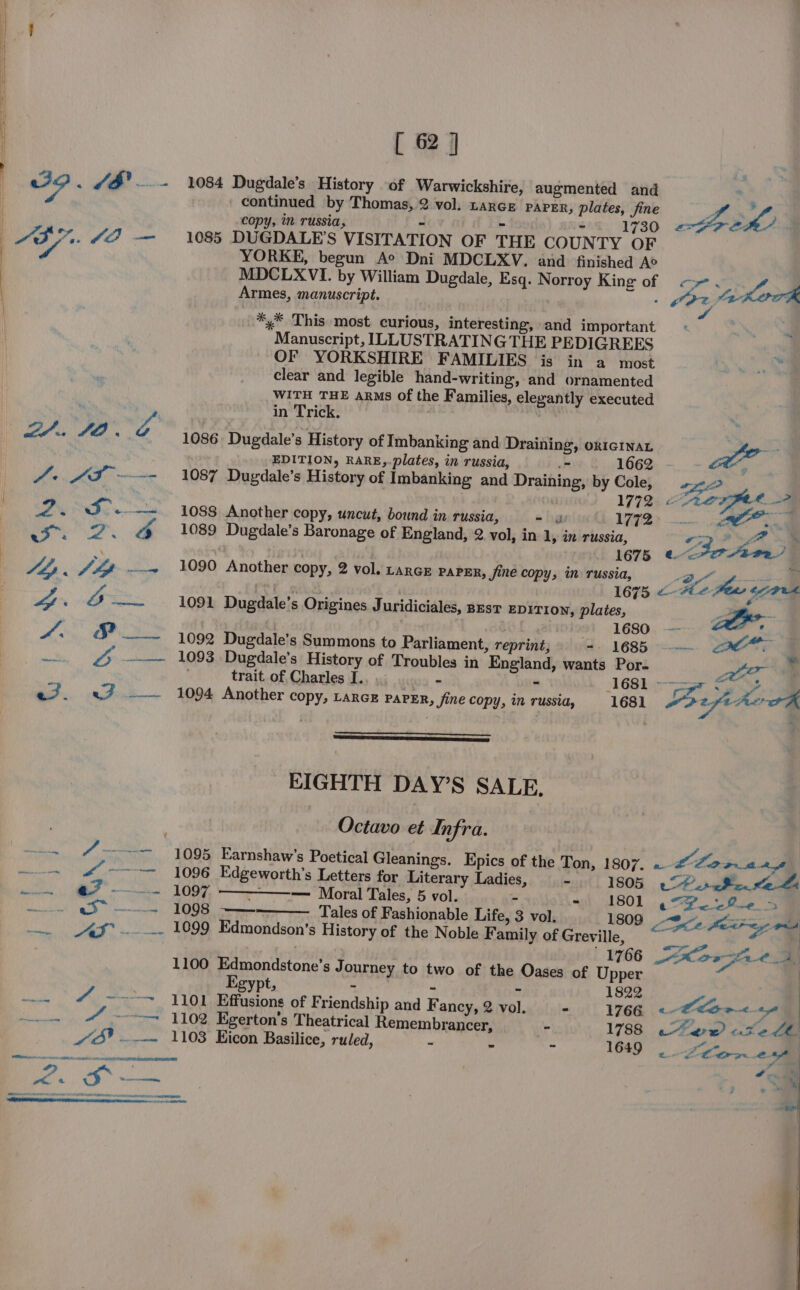 [ 62 ]
39. 18 — 1084 Dugdale's History of Warwickshire, augmented and
continued by Thomas, 2 vol. LARGE PAPER, plates, fine
copy, in russia, - - - 1730
157. 10 — 1085 DUGDALE'S VISITATION OF THE COUNTY OF
YORKE, begun Ao Dni MDCLXV. and finished Ao
MDCLXVI. by William Dugdale, Esq. Norroy King of
Armes, manuscript.
*** This most curious, interesting, and important
Manuscript, ILLUSTRATING THE PEDIGREES
OF YORKSHIRE FAMILIES is in a most
clear and legible hand-writing, and ornamented
WITH THE ARMS of the Families, elegantly executed
in Trick.
21. 10. 6 1086 Dugdale's History of Imbanking and Draining, ORIGINAL
EDITION, RARE, plates, in russia, - 1662 do
1. 15 — 1087 Dugdale's History of Imbanking and Draining, by Cole,
1772
2. 5. — 1088 Another copy, uncut, bound in russia, - 1772 do
5. 2. 6 1089 Dugdale's Baronage of England, 2 vol, in 1, in russia,
1675
14. 14 — 1090 Another copy, 2 vol. LARGE PAPER, fine copy, in russia,
1675
4. 6 — 1091 Dugdale's Origines Juridiciales, BEST EDITION, plates,
1680 — do
1. 8 — 1092 Dugdale's Summons to Parliament, reprint, - 1685 — do
— 6 — 1093 Dugdale's History of Troubles in England, wants Por-
trait of Charles I. - - 1681 — do
3. 3 — 1094 Another copy, LARGE PAPER, fine copy, in russia, 1681
EIGHTH DAY'S SALE.
Octavo et Infra.
— 1 — 1095 Earnshaw's Poetical Gleanings. Epics of the Ton, 1807.
— 2 — 1096 Edgeworth's Letters for Literary Ladies, - 1805
— 1097 ——— Moral Tales, 5 vol. - - 1801
— 5 — 1098 ——— Tales of Fashionable Life, 3 vol. 1809
— 15 — 1099 Edmondson's History of the Noble Family of Greville,
1766
1100 Edmondstone's Journey to two of the Oases of Upper
Egypt, - - - 1822
— 1 — 1101 Effusions of Friendship and Fancy, 2 vol. - 1766
— 1 — 1102 Egerton's Theatrical Remembrancer, - 1788
18 — 1103 Eicon Basilice, ruled, - - - 1649
2. 5 —